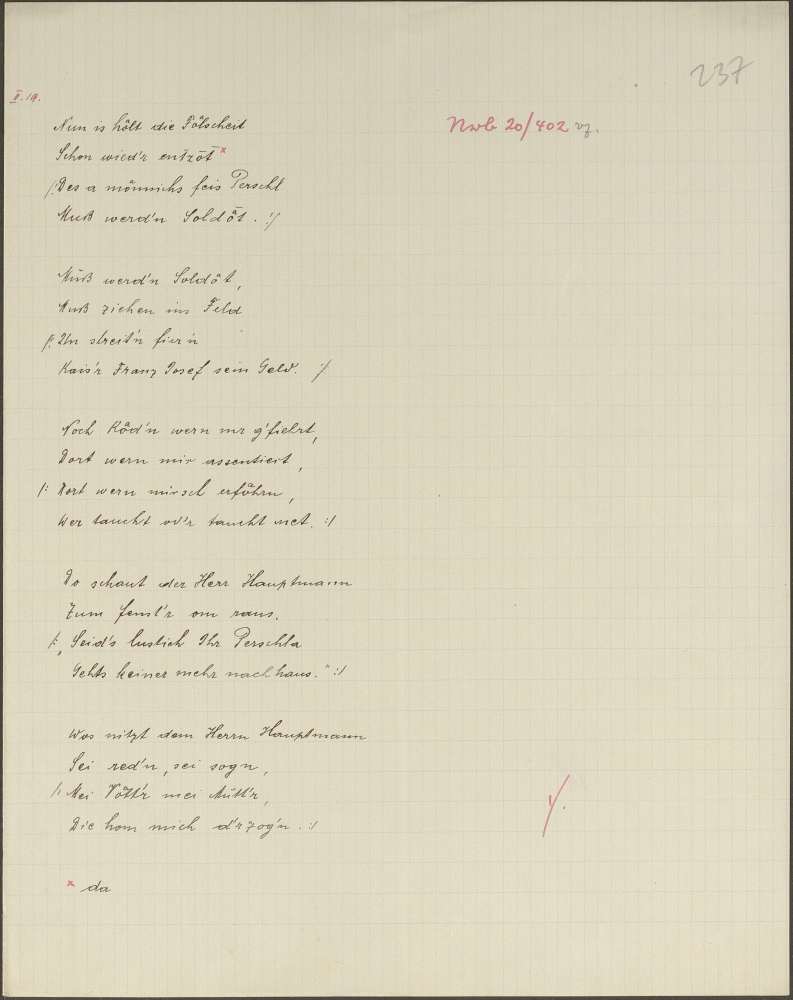 237
II. 19.
Nwb 20/402 vz.
Nun is hålt die Fålscheit
Schon wied'r entzöt x
/: Des a mönnichs feis Perschl
Muß werd'n Soldåt. :/
Muß werd'n Soldåt,
Muß ziehen ins Feld
/: Un streit'n fier'n
Kais'r Franz Josef sein Geld. :/
Noch Råd'n wern mr g'fiehrt,
Dort wern mir assentiert,
/: Dort wern mirsch erföhrn,
Wer taucht od'r taucht net. :/
Do schaut der Herr Hauptmann
Zum fenst'r om raus.
/: „Seid's lustich Ihr Perschla
Gehts keiner mehr nach haus." :/
Wos nitzt dem Herrn Hauptmann
Sei red'n, sei sogn,
/: Mei Vött'r mei Mutt'r,
Die hom mich d'rzog'n. :/
x da